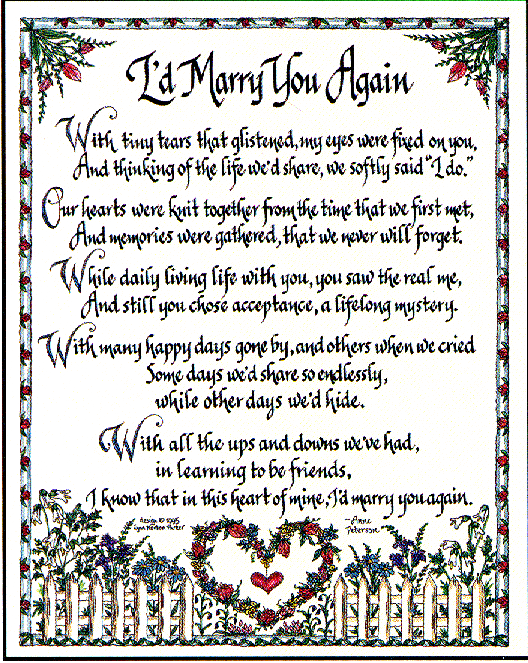 I'd Marry You Again
With tiny tears that glistened, my eyes were fixed on you,
And thinking of the life we'd share, we softly said "I do."
Our hearts were knit together from the time that we first met,
And memories were gathered, that we never will forget.
While daily living life with you, you saw the real me,
And still you chose acceptance, a lifelong mystery.
With many happy days gone by, and others when we cried
Some days we'd share so endlessly,
while other days we'd hide.
With all the ups and downs we've had,
in learning to be friends,
I know that in this heart of mine, I'd marry you again.
—Anne
Peterson
design © 1995